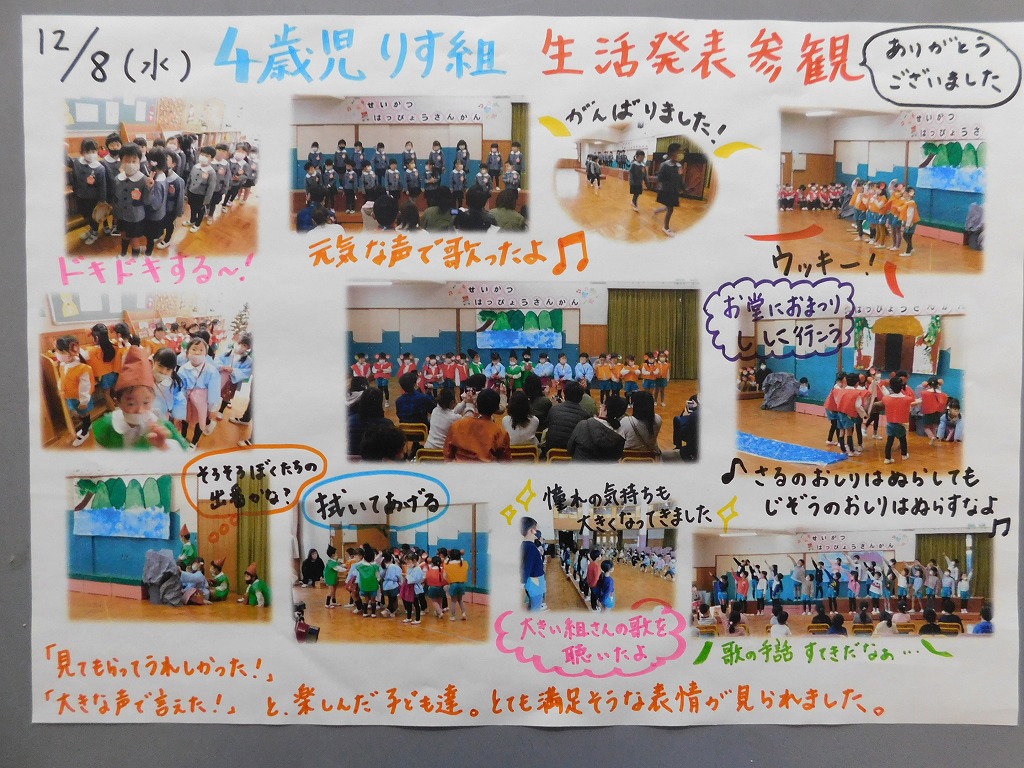 12/8(水) 4歳児 りす組 生活発表参観
ありがとう
ございました
せいかつ
はっぴょうさんかん
がんばりました!
せいかつ
はっぴょうさ
ドキドキする〜!
元気な声で歌ったよ♫
ウッキー!
せいかつ
はっぴょうさんかん
お堂におまつり
しに行こう
そろそろぼくたちの
出番かな?
拭いてあげる
憧れの気持ちも
大きくなってきました
♪さるのおしりはぬらしても
じぞうのおしりはぬらすなよ♫
せいかつ
はっぴょうさんかん
大きい組さんの歌を
聴いたよ
歌の手話 すてきだなぁ…
「見てもらってうれしかった!」
「大きな声で言えた!」 と、楽しんだ子ども達。とても満足そうな表情が見られました。